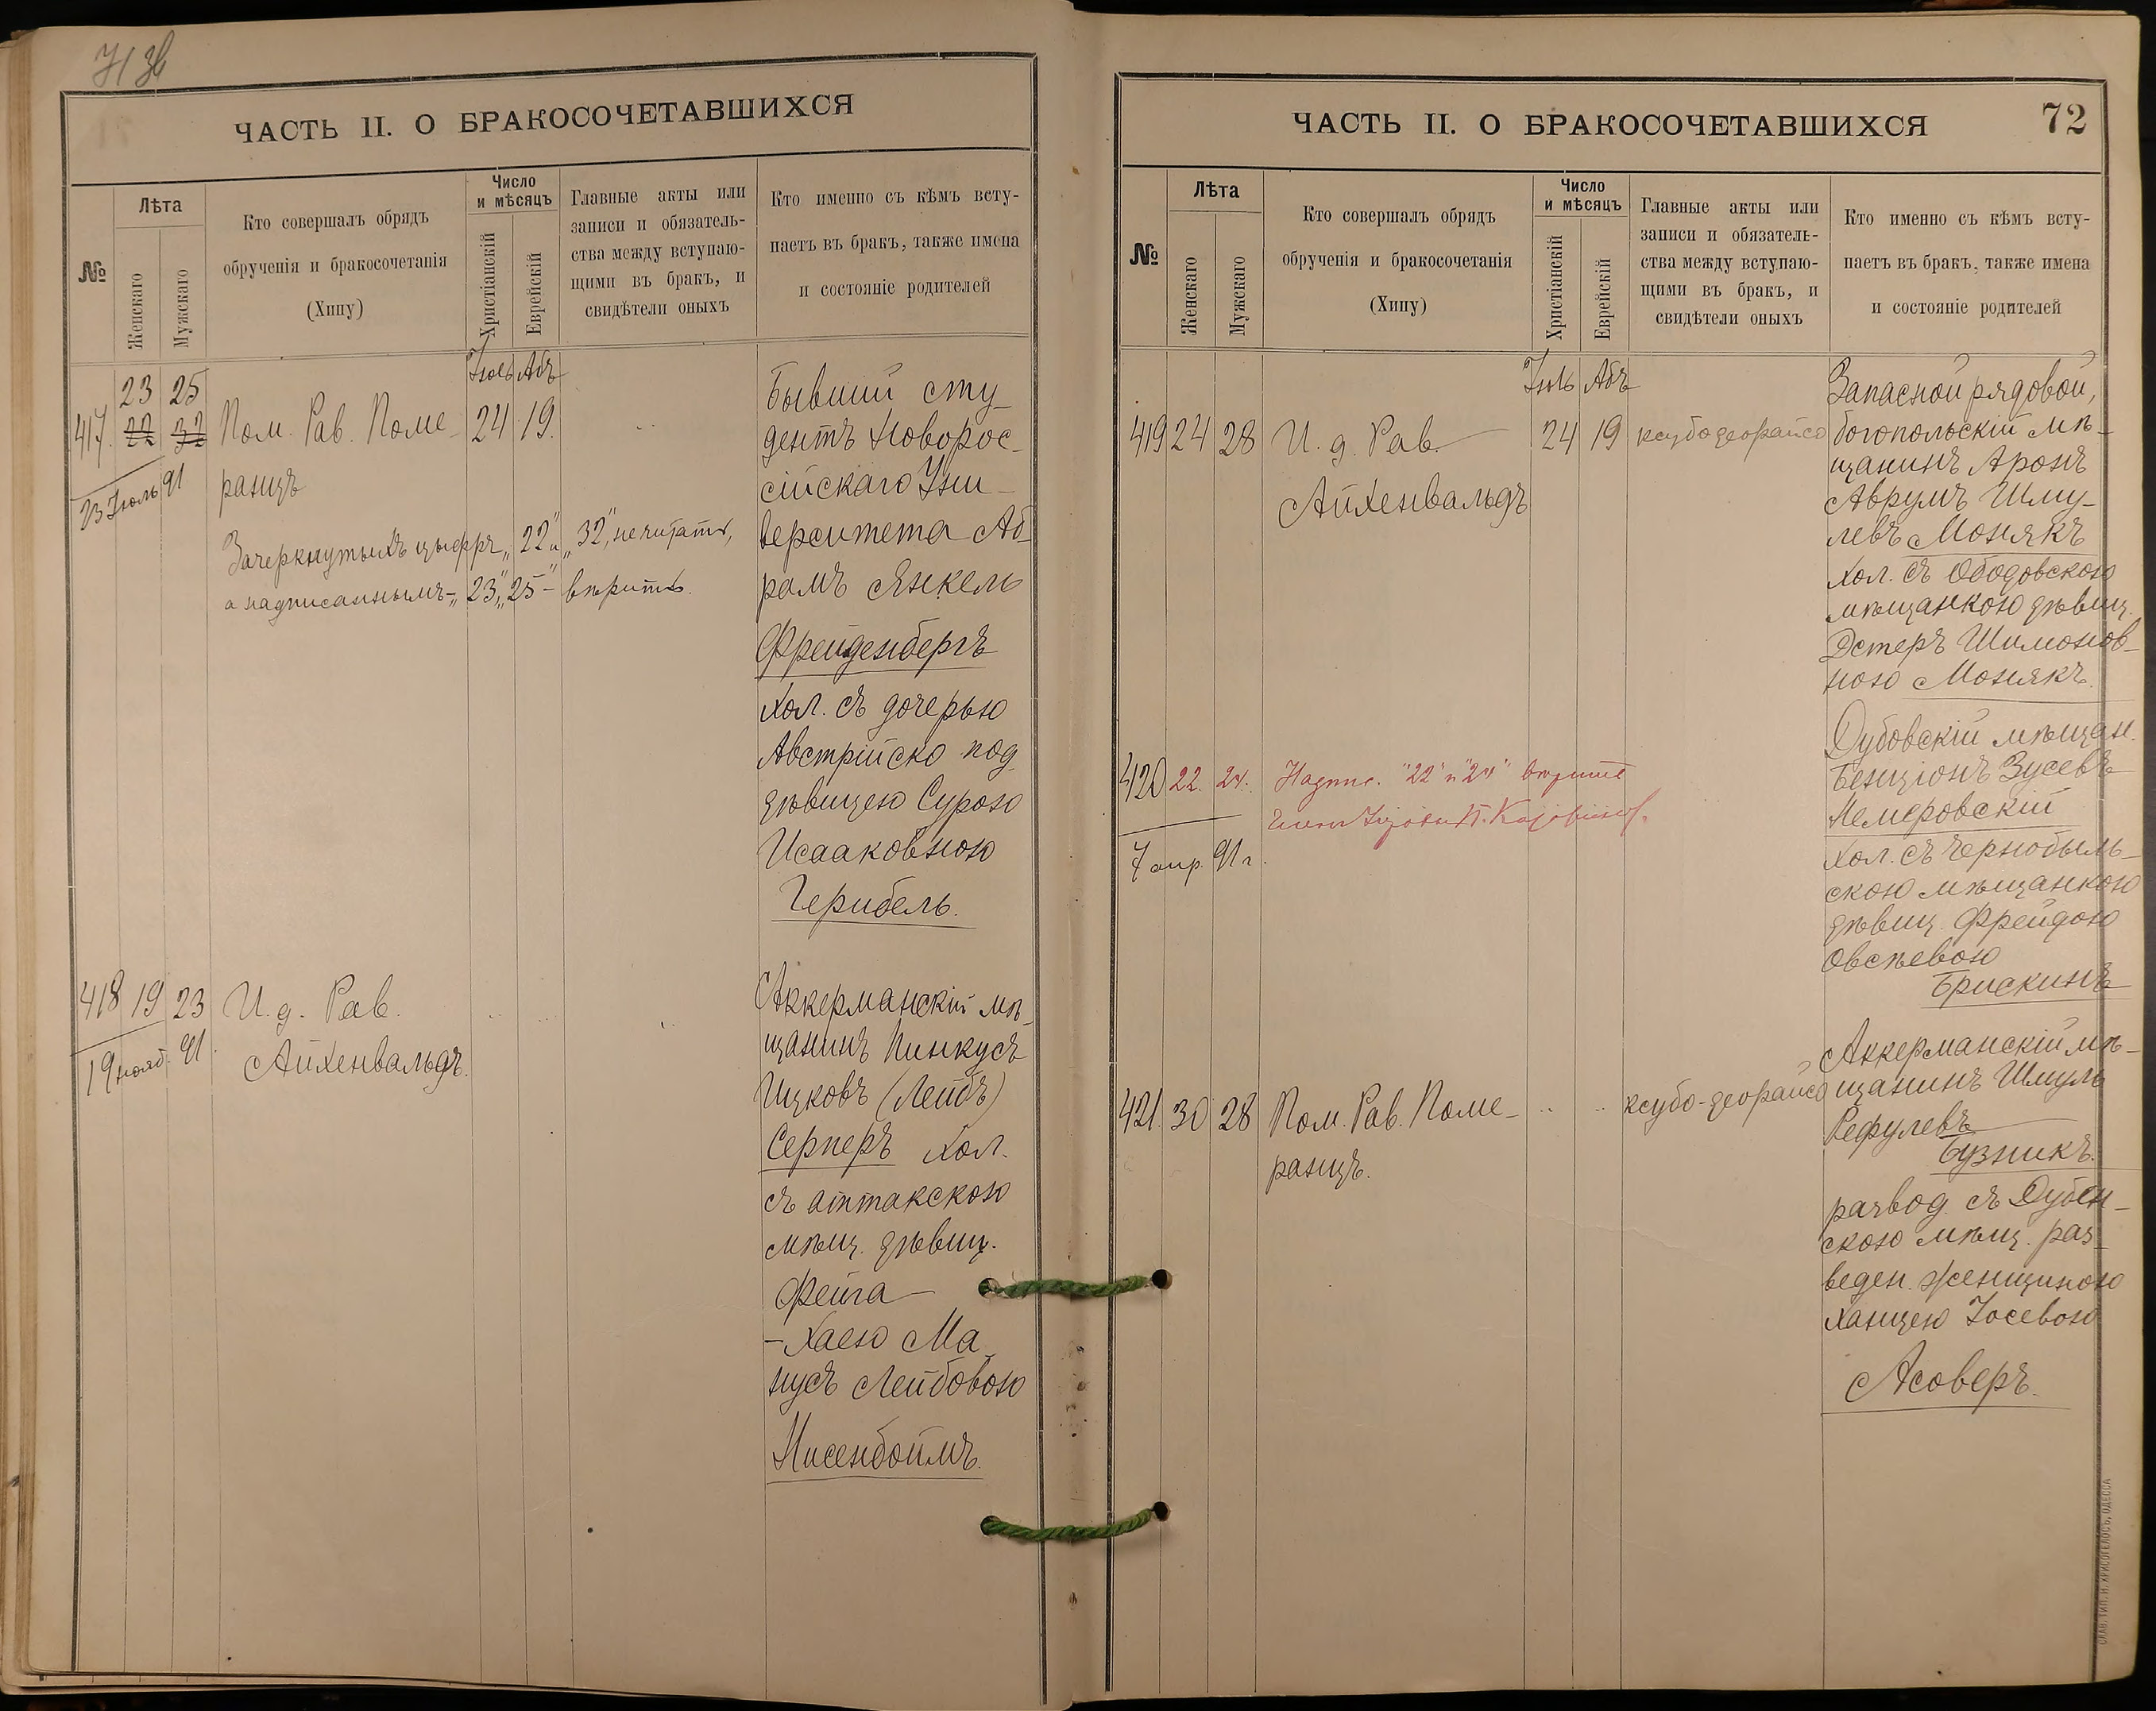 71 об
ЧАСТЬ II. О БРАКОСОЧЕТАВШИХСЯ
№
Лѣта
Женскаго
Мужскаго
Кто совершалъ обрядъ
обрученія и бракосочетанія
(Хипу)
Число
и мѣсяцъ
Христіанскій
Еврейскій
Главные акты или
записи и обязатель-
ства между вступаю-
щими въ бракъ, и
свидѣтели оныхъ
Кто именно съ кѣмъ всту-
паетъ въ бракъ, также имена
и состояніе родителей
Іюль Абъ
23 25
417. 22 32 Пом. Рав. Поме- 24 19.
ранцъ
23 Іюль 91
Зачеркнутыхъ цыфръ „22" и „32", не читать,
а надписаннымъ - „23" „25" - вѣрить.
Бывшій сту-
дентъ Новорос-
сійскаго Уни-
верситета Аб-
рамъ Янкель
Фрейденбергъ
хол. съ дочерью
Австрійско под.
дѣвицею Сурою
Исааковною
Герибель.
418 19 23 И. д. Рав.
Айхенвальдъ.
19 нояб. 91
Аккерманскій мѣ-
щанинъ Пинкусъ
Ицковъ (Лейбъ)
Серперъ хол.
съ аттакскою
мѣщ. дѣвиц.
Фейга
- Хаею Ма-
нусъ Лейбовою
Нисенбоймъ.
ЧАСТЬ II. О БРАКОСОЧЕТАВШИХСЯ
72
№
Лѣта
Женскаго
Мужскаго
Кто совершалъ обрядъ
обрученія и бракосочетанія
(Хипу)
Число
и мѣсяцъ
Христіанскій
Еврейскій
Главные акты или
записи и обязатель-
ства между вступаю-
щими въ бракъ, и
свидѣтели оныхъ
Кто именно съ кѣмъ всту-
паетъ въ бракъ, также имена
и состояніе родителей
Іюль Абъ
419 24 28 И. д. Рав. 24 19 ксубо деорайсо
Айхенвальдъ
Запасной рядовой,
богопольскій мѣ-
щанинъ Аронъ
Аврумъ Шму-
левъ Монякъ
хол. съ Ободовскою
мѣщанкою дѣвиц.
Эстеръ Шимонов-
ною Монякъ.
420 22. 24. Надпис. "22" и "24" вѣрить
7 апр. 91 г.
Дубовскій мѣщан.
Бенціонъ Зусевъ
Немеровскій
хол. съ чернобыль-
скою мѣщанкою
дѣвиц. Фрейдою
Овсѣевою
Брискинъ
421. 30 28 Пом. Рав. Поме- ксубо-деорайсо
ранцъ.
Аккерманскій мѣ-
щанинъ Шмуль
Рефулевъ
Бузникъ.
развод. съ Дубен-
скою мѣщ. раз-
веден. женщиною
Ханцею Іосевою
Асоверъ.
СЛАВ. ТИП. Н. ХРИСОГЕЛОСЪ, ОДЕССА